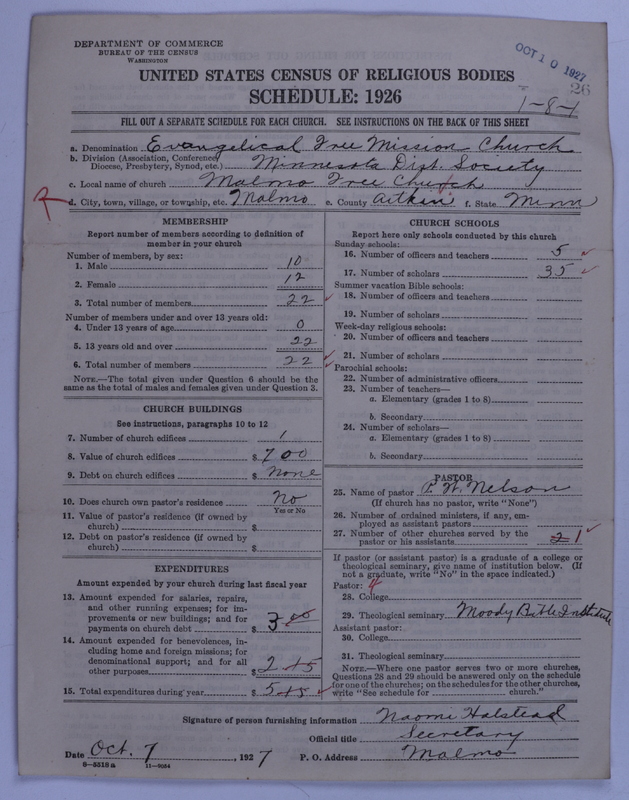 DEPARTMENT OF COMMERCE
BUREAU OF THE CENSUS
WASHINGTON
OCT 10 1927
26
UNITED STATES CENSUS OF RELIGIOUS BODIES
SCHEDULE: 1926
1-8-1
FILL OUT A SEPARATE SCHEDULE FOR EACH CHURCH. SEE INSTRUCTIONS ON THE BACK OF THIS SHEET
a. Denomination Evangelical Free Mission Church
b. Division (Association, Conference, Diocese, Presbytery, Synod, etc.) Minnesota Dist. Society
c. Local name of church Malmo Free Church
d. City, town, village, or township, etc. Malmo e. County Aitkin f. State Minn
MEMBERSHIP
Report number of members according to definition of
member in your church
Number of members, by sex:
1. Male 10
2. Female 12
3. Total number of members 22
Number of members under and over 13 years old:
4. Under 13 years of age 0
5. 13 years old and over 22
6. Total number of members 22
NOTE.—The total given under Question 6 should be the
same as the total of males and females given under Question 3.
CHURCH BUILDINGS
See instructions, paragraphs 10 to 12
7. Number of church edifices 1
8. Value of church edifices $ 700
9. Debt on church edifices $ None
10. Does church own pastor's residence No
Yes or No
11. Value of pastor's residence (if owned by
church) $
12. Debt on pastor's residence (if owned by
church) $
EXPENDITURES
Amount expended by your church during last fiscal year
13. Amount expended for salaries, repairs,
and other running expenses; for im-
provements or new buildings; and for
payments on church debt $ 3 00
14. Amount expended for benevolences, in-
cluding home and foreign missions; for
denominational support; and for all
other purposes $ 2 15
15. Total expenditures during year $ 5 15
CHURCH SCHOOLS
Report here only schools conducted by this church
Sunday schools:
16. Number of officers and teachers 5
17. Number of scholars 35
Summer vacation Bible schools:
18. Number of officers and teachers
19. Number of scholars
Week-day religious schools:
20. Number of officers and teachers
21. Number of scholars
Parochial schools:
22. Number of administrative officers
23. Number of teachers—
a. Elementary (grades 1 to 8)
b. Secondary
24. Number of scholars—
a. Elementary (grades 1 to 8)
b. Secondary
PASTOR
25. Name of pastor P. W. Nelson
(If church has no pastor, write "None")
26. Number of ordained ministers, if any, em-
ployed as assistant pastors
27. Number of other churches served by the
pastor or his assistants 2 1
If pastor (or assistant pastor) is a graduate of a college or
theological seminary, give name of institution below. (If
not a graduate, write "No" in the space indicated.)
Pastor: 4
28. College
29. Theological seminary Moody Bible Institute
Assistant pastor:
30. College
31. Theological seminary
NOTE.—Where one pastor serves two or more churches,
Questions 28 and 29 should be answered only on the schedule
for one of the churches; on the schedules for the other churches,
write "See schedule for church."
Signature of person furnishing information Naomi Halstead
Official title Secretary
Date Oct. 7, 1927 P. O. Address Malmo
8-5518a 11-9054